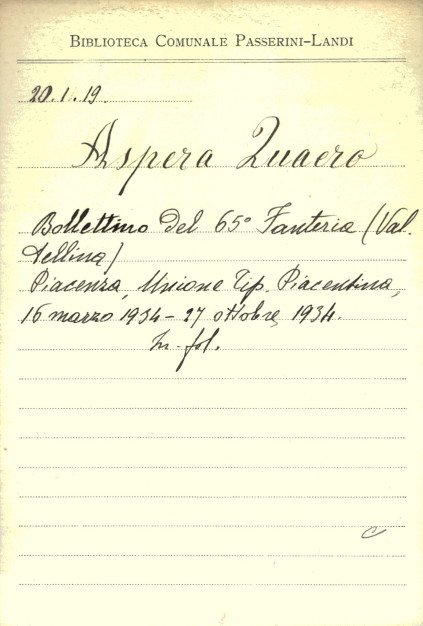 BIBLIOTECA COMUNALE PASSERINI-LANDI
20.1.19.
Aspera Quaero
Bollettino del 65° Fanteria (Val.
tellina)
Piacenza, Unione Tip. Piacentina,
16 marzo 1934 - 27 ottobre 1934.
In-fol.
C